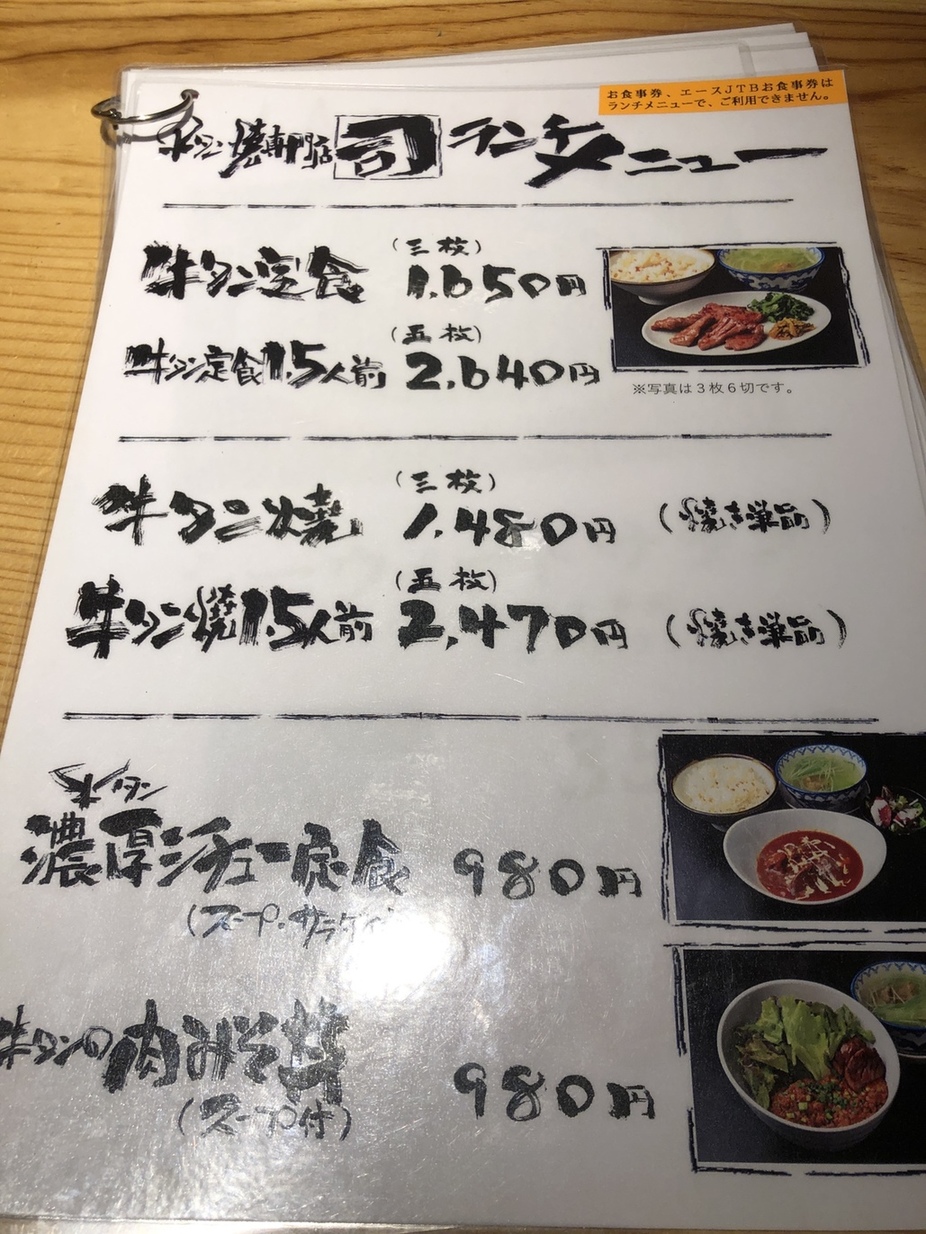 お食事券、エースJTBお食事券は
ランチメニューで、ご利用できません。
牛タン焼専門店 司 ランチメニュー
(三枚)
牛タン定食 1,650円
(五枚)
牛タン定食1.5人前 2,640円
※写真は3枚6切です。
(三枚)
牛タン焼 1,480円 (焼き単品)
(五枚)
牛タン焼1.5人前 2,470円 (焼き単品)
牛タン
濃厚シチュー定食 980円
(スープ・サラダ
牛タンの肉みそ丼 980円
(スープ付)